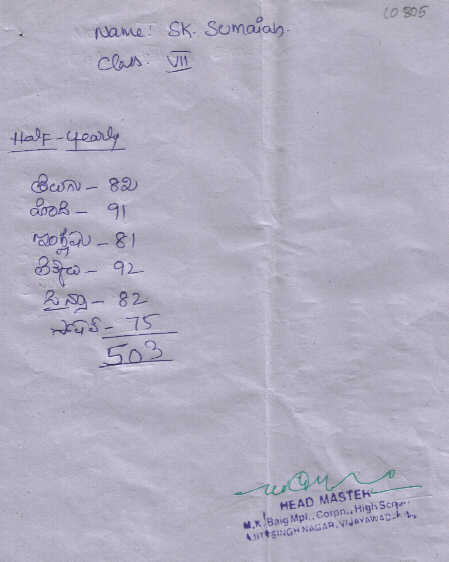 LO 805
Name: SK. Sumaiah.
Class: VII
Half-Yearly
తెలుగు - 82
హిందీ - 91
ఇంగ్లీషు - 81
లెక్కలు - 92
సైన్సు - 82
సోషల్ - 75
503
HEAD MASTER
M.K. Baig Mpl., Corpn., High School
SINGH NAGAR, VIJAYAWADA